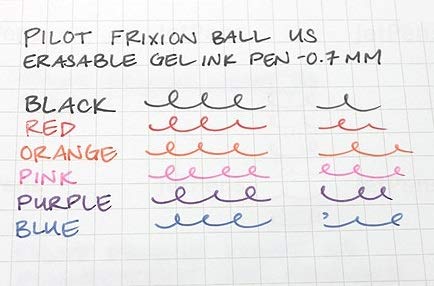 PILOT FRIXION BALL US
ERASABLE GEL INK PEN -0.7 MM
BLACK
RED
ORANGE
PINK
PURPLE
BLUE